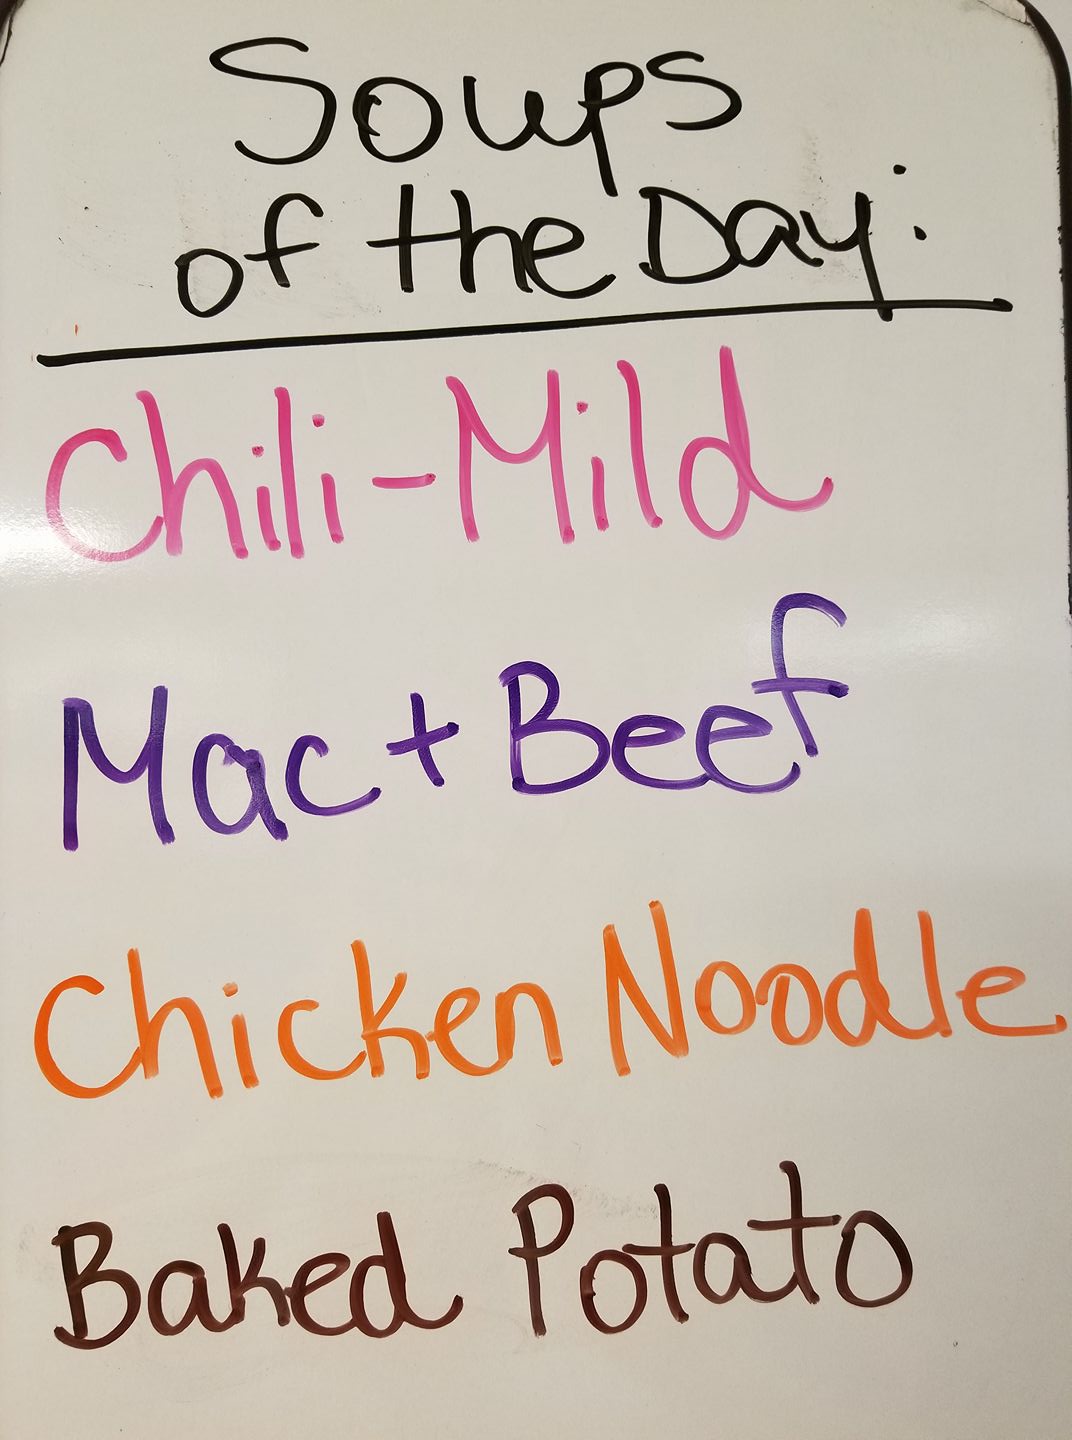 Soups
of the Day:
Chili-Mild
Mac + Beef
Chicken Noodle
Baked Potato